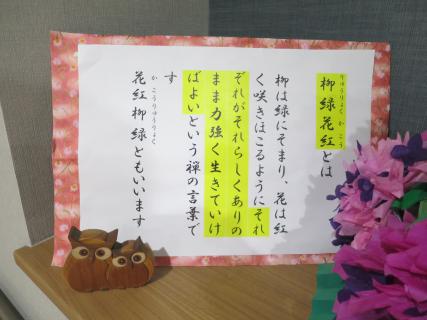 りゅうりょく か こう
柳緑花紅とは
柳は緑にそまり、花は紅
く咲きほこるようにそれ
ぞれがそれらしくありの
まま力強く生きていけ
ばよいという禅の言葉で
す
か こうりゅうりょく
花紅柳緑ともいいます